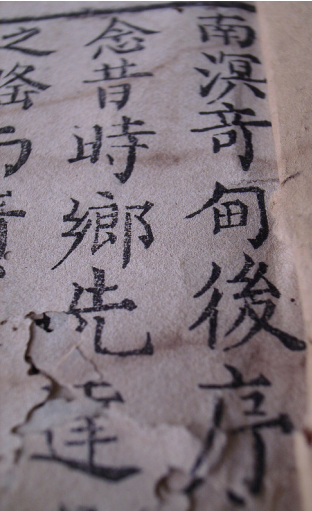 南溟奇甸後序
念昔時鄉先達
之